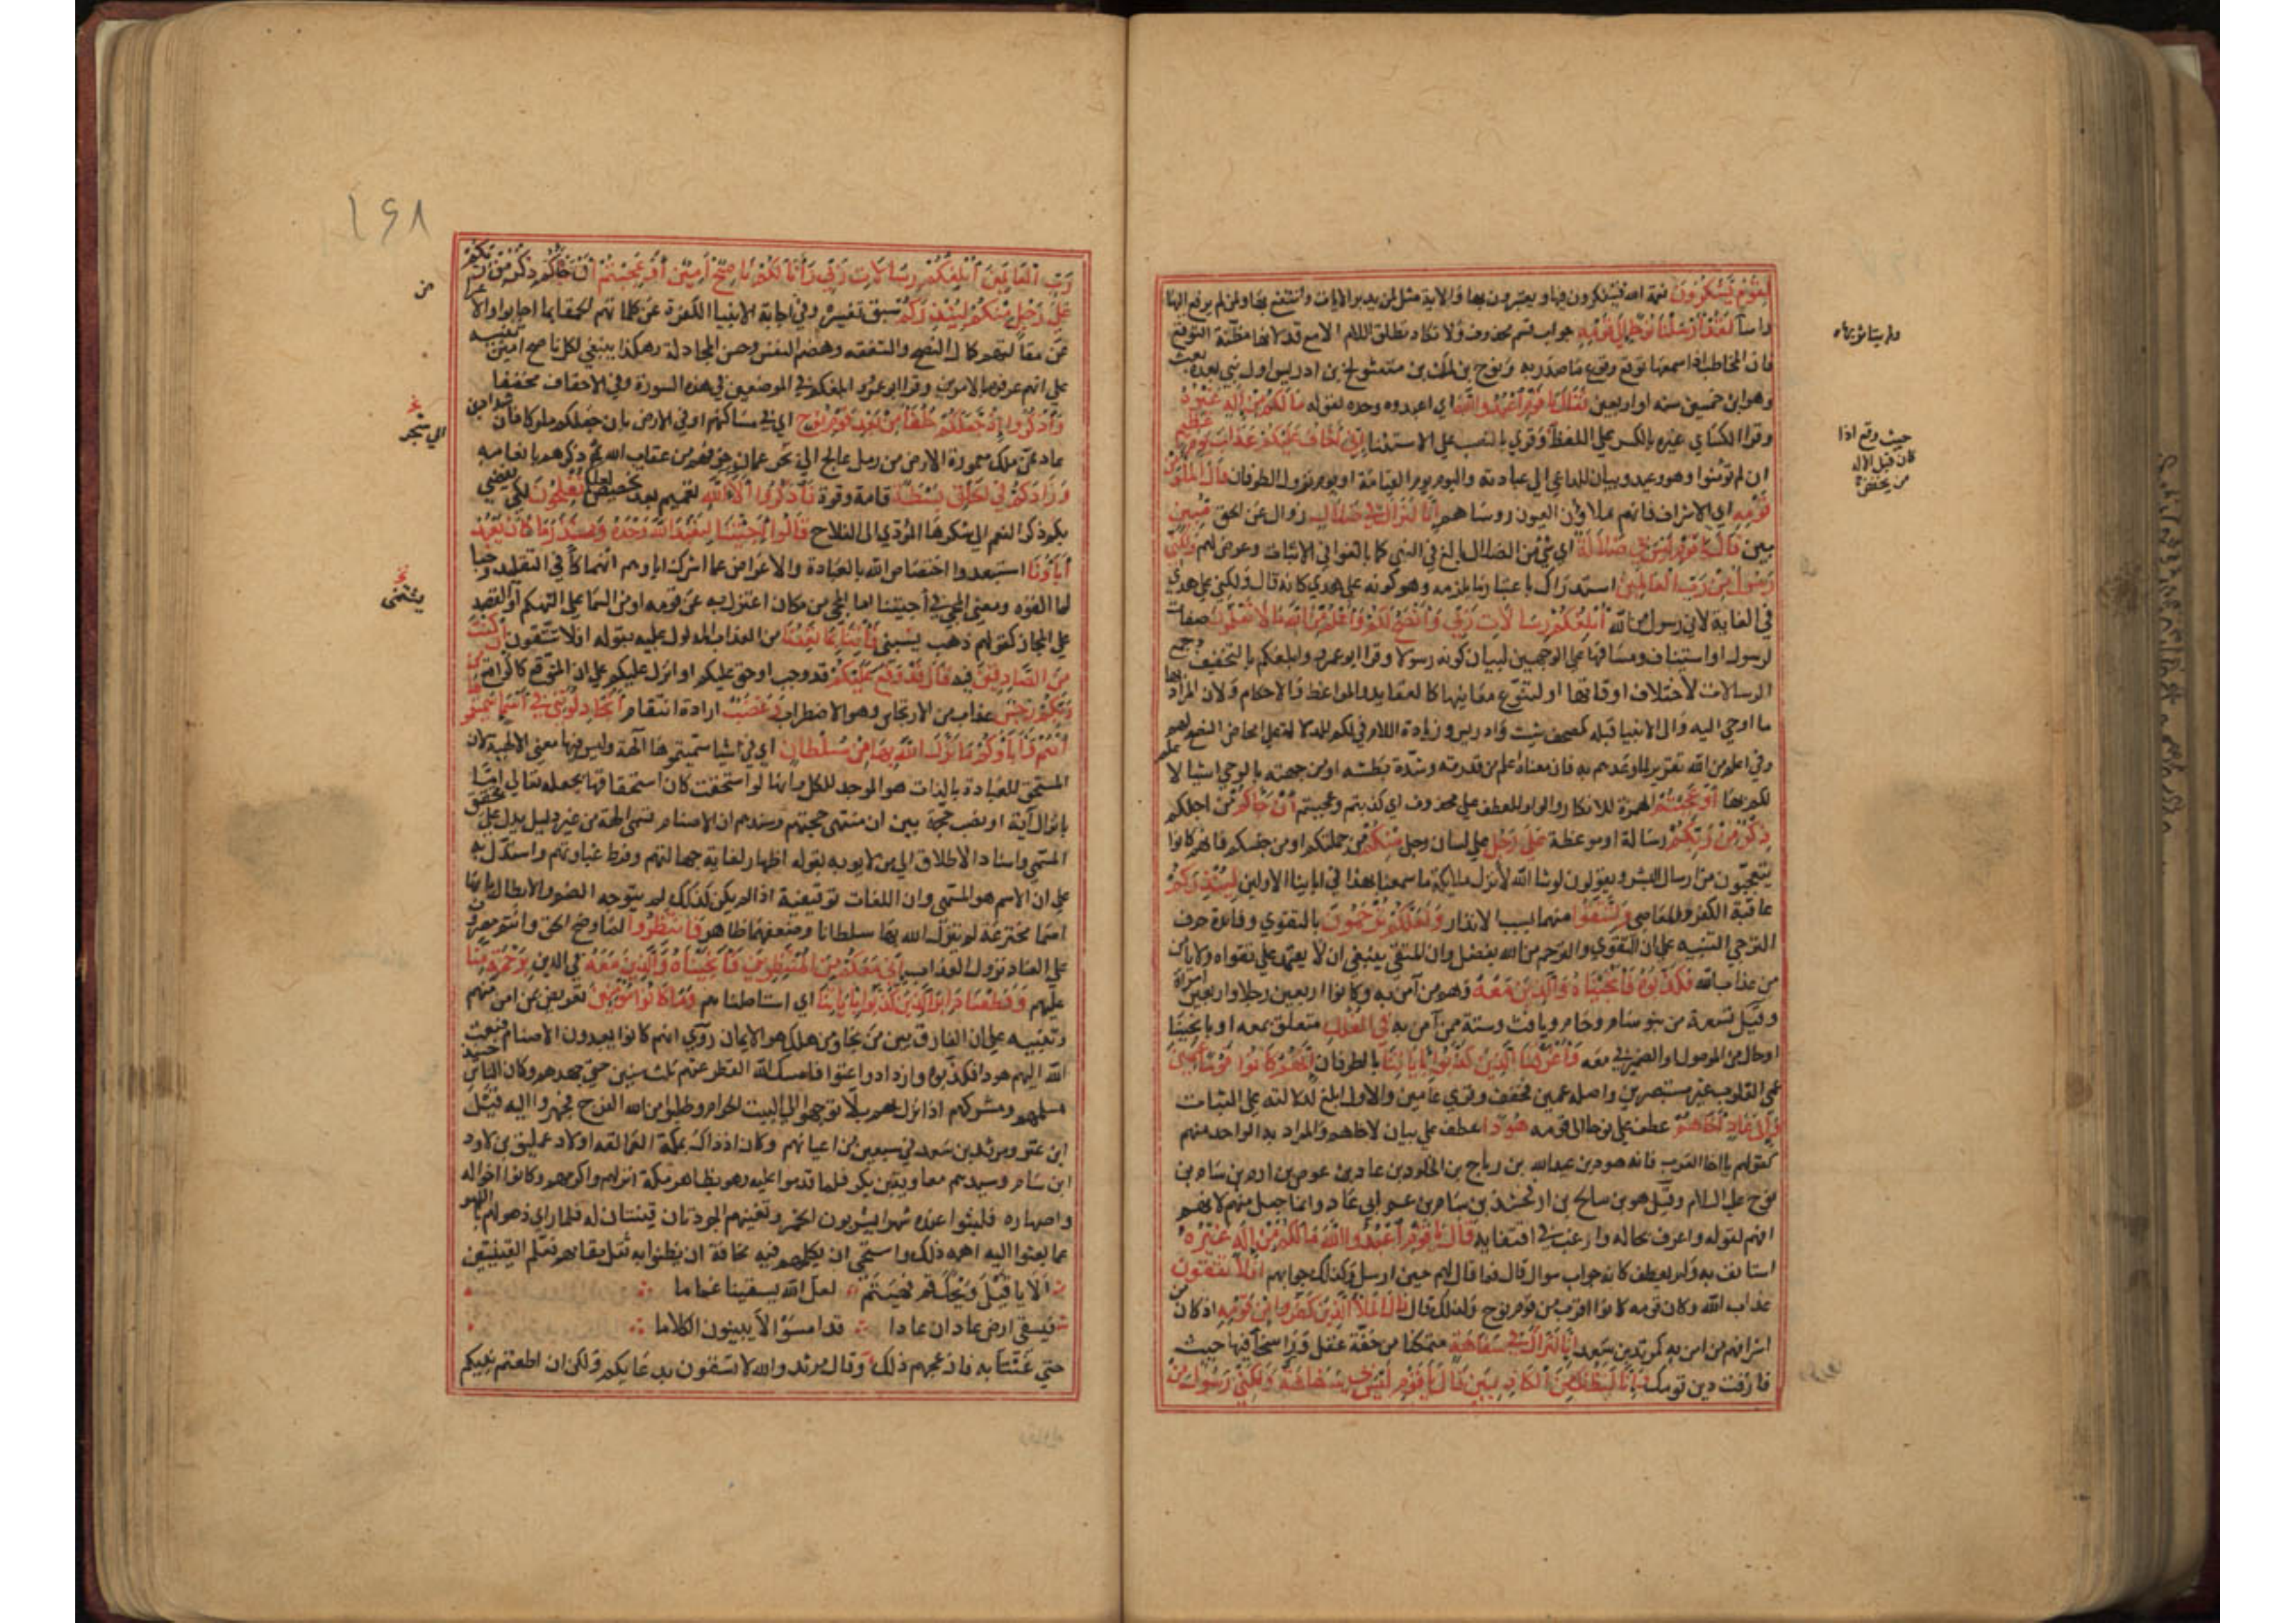 لِقَوْمٍ يَشْكُرُونَ نعمة الله فيتفكرون فيها ويعتبرون بها والاية مثل لمن تدبر الايات وانتفع بها ولمن لم يرفع اليها
راسا لَقَدْ أَرْسَلْنَا نُوحًا إِلَى قَوْمِهِ جواب قسم محذوف ولا تكاد تطلق اللام الا مع قد لانها مظنة التوقع
فان المخاطب اذا سمعها توقع وقوع ما صدر به ونوح بن لمك بن متوشلخ بن ادريس اول نبي بعده بعث
وهو ابن خمسين سنه او اربعين فَقَالَ يَا قَوْمِ اعْبُدُوا اللَّهَ اي اعبدوه وحده لقوله مَا لَكُمْ مِنْ إِلَهٍ غَيْرُهُ
وقرا الكسائي غيره بالكسر على اللفظ وقري بالنصب على الاستثنا إِنِّي أَخَافُ عَلَيْكُمْ عَذَابَ يَوْمٍ عَظِيمٍ
ان لم تؤمنوا وهو وعيد وبيان للداعي الي عبادته واليوم يوم القيامة او يوم نزول الطوفان قَالَ الْمَلَأُ مِنْ
قَوْمِهِ اي الاشراف فانهم يملاون العيون روساهم إِنَّا لَنَرَاكَ فِي ضَلَالٍ زوال عن الحق مُبِينٍ
بين قَالَ يَا قَوْمِ لَيْسَ بِي ضَلَالَةٌ اي شي من الضلال بالغ في النفي كما بالغوا في الاثبات وعرض لهم به وَلَكِنِّي
رَسُولٌ مِنْ رَبِّ الْعَالَمِينَ استدراك باعتبار ما يلزمه وهو كونه على هدي كانه قال ولكني على هدي
في الغاية لاني رسول من الله أُبَلِّغُكُمْ رِسَالَاتِ رَبِّي وَأَنْصَحُ لَكُمْ وَأَعْلَمُ مِنَ اللَّهِ مَا لَا تَعْلَمُونَ صفات
لرسول او استيناف ومساقها على الوجهين لبيان كونه رسولا وقرا ابو عمرو وابلغكم بالتخفيف وجمع
الرسالات لاختلاف اوقاتها او لتنوع معانيها كالعقايد والمواعظ والاحكام ولان المراد بها
ما اوحي اليه والى الانبيا قبله كصحف شيث وادريس وزيادة اللام في لكم للدلالة على امحاض النصح لهم
وفي اعلم من الله تقرير لما وعدهم به فان معناه اعلم من قدرته وشدة بطشه او من جهته بالوحي اشيا لا علم
لكم بها أَوَعَجِبْتُمْ الهمزة للانكار والواو للعطف على محذوف اي كذبتم وعجبتم أَنْ جَاءَكُمْ من اجلكم
ذِكْرٌ مِنْ رَبِّكُمْ رسالة او موعظة عَلَى رَجُلٍ على لسان رجل مِنْكُمْ من جملتكم او من جنسكم فانهم كانوا
يتعجبون من ارسال البشر ويقولون لو شا الله لانزل ملائكة ما سمعنا بهذا في ابائنا الاولين لِيُنْذِرَكُمْ
عاقبة الكفر والمعاصي وَلِتَتَّقُوا منهما بسبب الانذار وَلَعَلَّكُمْ تُرْحَمُونَ بالتقوي وفائدة حرف
الترجي التنبيه على ان التقوي والترحم من الله بفضل وان المتقي ينبغي ان لا يعتمد على تقواه ولا يأمن
من عذاب الله فَكَذَّبُوهُ فَأَنْجَيْنَاهُ وَالَّذِينَ مَعَهُ وهم من آمن به وكانوا اربعين رجلا واربعين امراة
وقيل تسعة من بنوه سام وحام ويافث وستة ممن آمن به فِي الْفُلْكِ متعلق بمعه او بانجينا
او حال من الموصول او الضمير في معه وَأَغْرَقْنَا الَّذِينَ كَذَّبُوا بِآيَاتِنَا بالطوفان إِنَّهُمْ كَانُوا قَوْمًا عَمِينَ
عمي القلوب غير مستبصرين واصله عميين فخفف وقري عامين والاول ابلغ لدلالته على الثبات
وَإِلَى عَادٍ أَخَاهُمْ عطف على نوحا الى قومه هُودًا عطف على بيان لاخاهم والمراد به الواحد منهم
كقولهم يا اخا العرب فانه هود بن عبدالله بن رباح بن الخلود بن عاد بن عوص بن ارم بن سام بن
نوح عليه السلام وقيل هو بن صالح بن ارفخشد بن سام بن عم ابي عاد وانما جعل منهم لانهم
افهم لقوله واعرف بحاله وارغب في اقتفايه قَالَ يَا قَوْمِ اعْبُدُوا اللَّهَ مَا لَكُمْ مِنْ إِلَهٍ غَيْرُهُ
استانف به ولم يعطف كانه جواب سوال قال فما قال لهم حين ارسل وكذلك جوابهم أَفَلَا تَتَّقُونَ
عذاب الله وكان قومه كانوا اقرب من قوم نوح ولذلك قال قَالَ الْمَلَأُ الَّذِينَ كَفَرُوا مِنْ قَوْمِهِ اذ كان من
اشرافهم من امن به كمرثد بن سعد إِنَّا لَنَرَاكَ فِي سَفَاهَةٍ متمكنا من خفة عقل وراسخا فيها حيث
فارقت دين قومك وَإِنَّا لَنَظُنُّكَ مِنَ الْكَاذِبِينَ قَالَ يَا قَوْمِ لَيْسَ بِي سَفَاهَةٌ وَلَكِنِّي رَسُولٌ مِنْ
حيث وقع اذا
كان قبل اله
من يخفض
١٤٨
رَبِّ الْعَالَمِينَ أُبَلِّغُكُمْ رِسَالَاتِ رَبِّي وَأَنَا لَكُمْ نَاصِحٌ أَمِينٌ أَوَعَجِبْتُمْ أَنْ جَاءَكُمْ ذِكْرٌ مِنْ رَبِّكُمْ
عَلَى رَجُلٍ مِنْكُمْ لِيُنْذِرَكُمْ سبق تفسيره وفي اجابة الانبيا الكفرة عن كلماتهم الحمقا بما اجابوا والاعراض
عن مقابلتهم كمال النصح والشفقه وهضم النفس وحسن المجادلة وهكذا ينبغي لكل ناصح امين تنبيه
على انهم عرفوه بالامرين وقرا ابو عمرو ابلغكم في الموضعين في هذه السورة وفي الاحقاف مخففا
وَاذْكُرُوا إِذْ جَعَلَكُمْ خُلَفَاءَ مِنْ بَعْدِ قَوْمِ نُوحٍ اي في مساكنهم او في الارض بان جعلكم ملوكا فان شداد بن
عاد ممن ملك معمورة الارض من رمل عالج الي بحر عمان خوفهم من عقاب الله ثم ذكرهم بانعامه
وَزَادَكُمْ فِي الْخَلْقِ بَسْطَةً قامة وقوة فَاذْكُرُوا آلَاءَ اللَّهِ تعميم بعد تخصيص لَعَلَّكُمْ تُفْلِحُونَ لكي يفضي
بكم ذكر النعم الي شكرها المؤدي الى الفلاح قَالُوا أَجِئْتَنَا لِنَعْبُدَ اللَّهَ وَحْدَهُ وَنَذَرَ مَا كَانَ يَعْبُدُ
آبَاؤُنَا استبعدوا اختصاص الله بالعبادة والاعراض عما اشرك اباوهم انهماكا في التقليد وحبا
لما الفوه ومعنى المجي في أجئتنا اما المجي من مكان اعتزل به عن قومه او من السما على التهكم او القصد
على المجاز كقولهم ذهب يسبني فَأْتِنَا بِمَا تَعِدُنَا من العذاب المدلول عليه بقوله افلا تتقون إِنْ كُنْتَ
مِنَ الصَّادِقِينَ فيه قَالَ قَدْ وَقَعَ عَلَيْكُمْ قد وجب او حق عليكم او انزل عليكم على ان المتوقع كالواقع مِنْ
رَبِّكُمْ رِجْسٌ عذاب من الارتجاس وهو الاضطراب وَغَضَبٌ ارادة انتقام أَتُجَادِلُونَنِي فِي أَسْمَاءٍ سَمَّيْتُمُوهَا
أَنْتُمْ وَآبَاؤُكُمْ مَا نَزَّلَ اللَّهُ بِهَا مِنْ سُلْطَانٍ اي في اشيا سميتموها آلهة وليس فيها معنى الالهية لان
المستحق للعبادة بالذات هو الموجد للكل وانها لو استحقت كان استحقاقها بجعله تعالي اما
بانزال آية او نصب حجة بين ان منتهى حجتهم وسندهم ان الاصنام تسمى الهة من غير دليل يدل على تحقق
المسمى واسناد الاطلاق الى من لا يوبه بقوله اظهارا لغاية جهالتهم وفرط غباوتهم واستدل به
على ان الاسم هو المسمى وان اللغات توقيفية اذ لو لم يكن كذلك لم يتوجه الذم والابطال بانها
اسما مخترعة لم ينزل الله بها سلطانا وضعفهما ظاهر فَانْتَظِرُوا لما وضح الحق وانتم مصرون
على العناد نزول العذاب إِنِّي مَعَكُمْ مِنَ الْمُنْتَظِرِينَ فَأَنْجَيْنَاهُ وَالَّذِينَ مَعَهُ في الدين بِرَحْمَةٍ مِنَّا
عليهم وَقَطَعْنَا دَابِرَ الَّذِينَ كَذَّبُوا بِآيَاتِنَا اي استاصلناهم وَمَا كَانُوا مُؤْمِنِينَ تعريض بمن امن منهم
وتنبيه على ان الفارق بين من نجا وبين من هلك هو الايمان روي انهم كانوا يعبدون الاصنام فبعث
الله اليهم هودا فكذبوه وازدادوا عتوا فامسك الله القطر عنهم ثلث سنين حتى جهدهم وكان الناس حينئذ
مسلمهم ومشركهم اذا نزل بهم بلا توجهوا الى البيت الحرام وطلبوا من الله الفرج فجهزوا اليه قيل
ابن عنز ومرثد بن سعد في سبعين من اعيانهم وكان اذ ذاك بمكة العمالقة اولاد عمليق بن لاود
ابن سام وسيدهم معاوية بن بكر فلما قدموا عليه وهو بظاهر مكة انزلهم واكرمهم وكانوا اخواله
واصهاره فلبثوا عنده شهرا يشربون الخمر وتغنيهم الجردتان قينتان له فلما راي ذهولهم باللهو
عما بعثوا اليه اهمه ذلك واستحى ان يكلمهم فيه مخافة ان يظنوا به ثقل مقامهم فعلم القينتين
الا يا قيل ويحك قم فهينم لعل الله يسقينا غماما
فيسقى ارض عاد ان عادا قد امسوا لا يبينون الكلاما
حتى غنتا به فازعجهم ذلك وقال مرثد والله لا تسقون بدعايكم ولكن ان اطعتم نبيكم
من
الي شجر